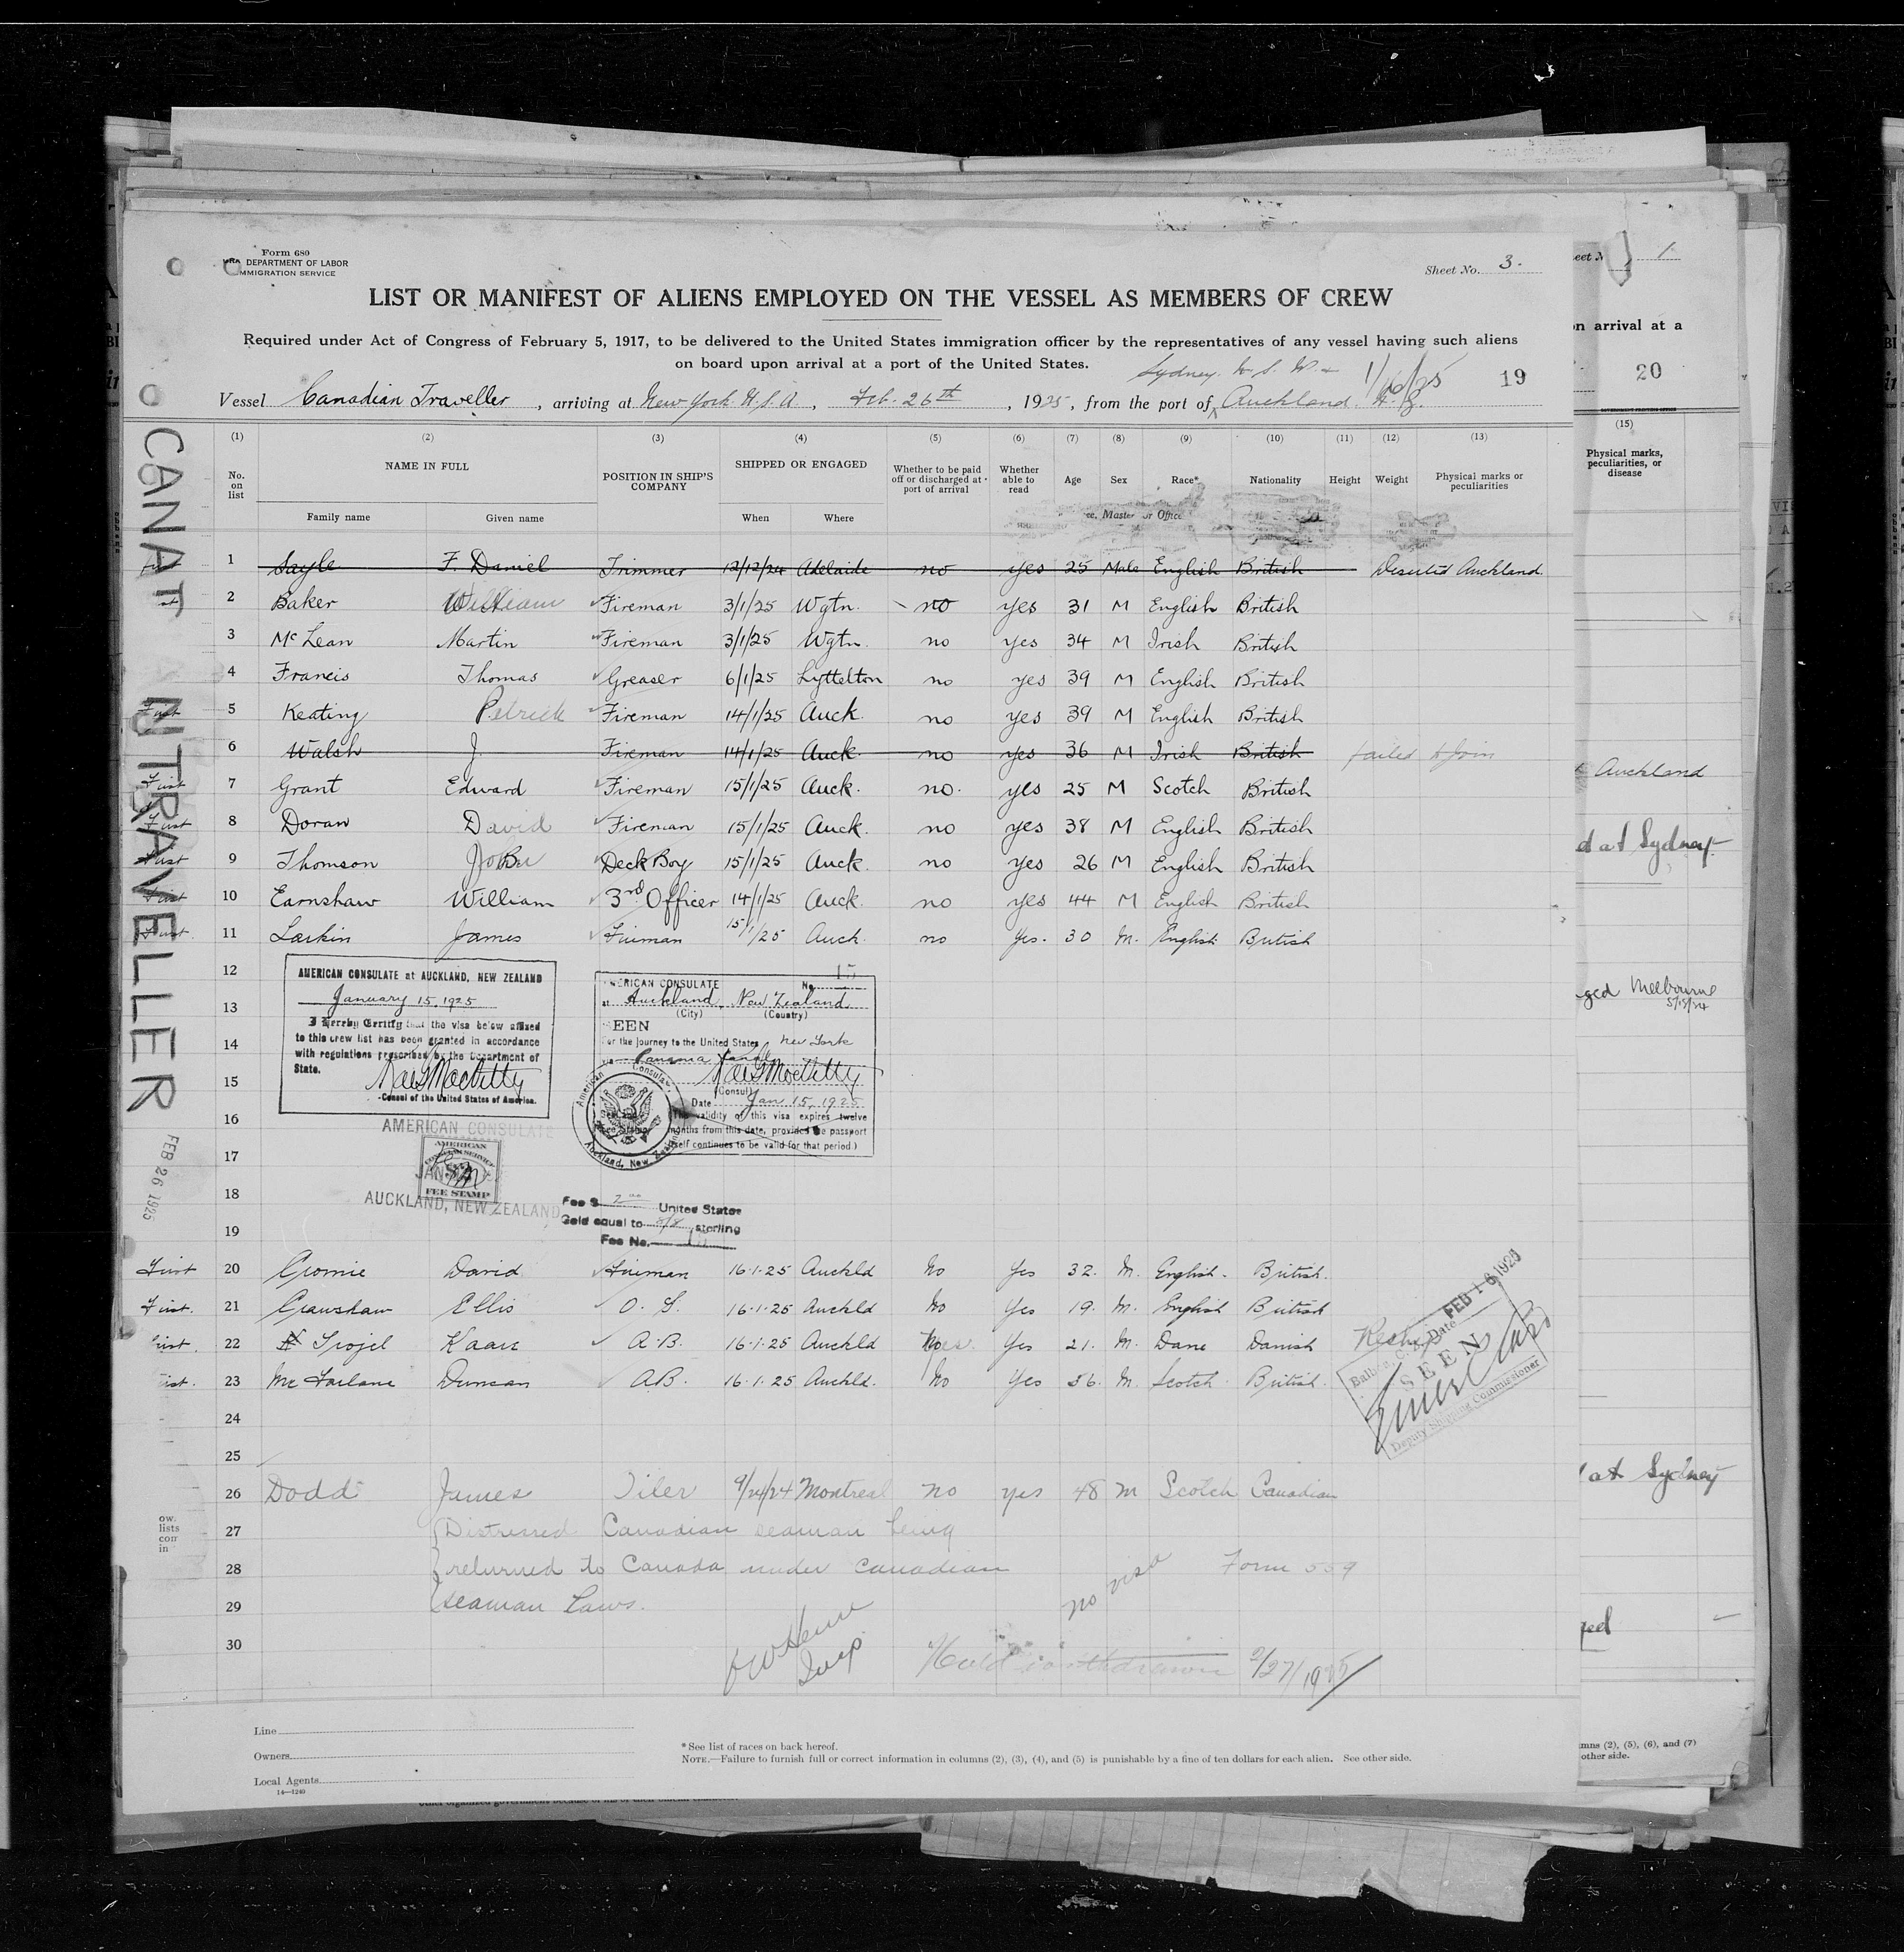 Form 680
DEPARTMENT OF LABOR
IMMIGRATION SERVICE
Sheet No. 3.
LIST OR MANIFEST OF ALIENS EMPLOYED ON THE VESSEL AS MEMBERS OF CREW
Required under Act of Congress of February 5, 1917, to be delivered to the United States immigration officer by the representatives of any vessel having such aliens
on board upon arrival at a port of the United States.
Sydney N. S. W. + 1/16/25 19
Vessel Canadian Traveller, arriving at New York U.S.A., Feb. 26th, 1925, from the port of Auckland N.Z.
(1) (2) (3) (4) (5) (6) (7) (8) (9) (10) (11) (12) (13)
No. on list NAME IN FULL POSITION IN SHIP'S COMPANY SHIPPED OR ENGAGED Whether to be paid off or discharged at port of arrival Whether able to read Age Sex Race* Nationality Height Weight Physical marks or peculiarities
Family name Given name When Where
Master or Office
1 Sayle F. Daniel Trimmer 12/12/24 Adelaide no yes 25 Male English British Deserted Auckland.
2 Baker William Fireman 3/1/25 Wgtn. no yes 31 M English British
3 McLean Martin Fireman 3/1/25 Wgtn. no yes 34 M Irish British
4 Francis Thomas Greaser 6/1/25 Lyttelton no yes 39 M English British
First 5 Keating Patrick Fireman 14/1/25 Auck. no yes 39 M English British
6 Walsh J. Fireman 14/1/25 Auck. no yes 36 M Irish British failed to join
First 7 Grant Edward Fireman 15/1/25 Auck. no. yes 25 M Scotch British
First 8 Doran David Fireman 15/1/25 Auck. no yes 38 M English British
First 9 Thomson John Deck Boy 15/1/25 Auck. no yes 26 M English British
First 10 Earnshaw William 3rd Officer 14/1/25 Auck. no yes 44 M English British
First. 11 Larkin James Fireman 15/1/25 Auck. no Yes. 30 M. English British
12
13
14
15
16
17
18
19
AMERICAN CONSULATE at AUCKLAND, NEW ZEALAND
January 15, 1925
I Hereby Certify that the visa below affixed
to this crew list has been granted in accordance
with regulations prescribed by the Department of
State.
Consul of the United States of America.
AMERICAN CONSULATE No. 15
at Auckland, New Zealand
(City) (Country)
SEEN
For the journey to the United States New York
via Panama Canal
(Consul)
Date Jan 15, 1925
(The validity of this visa expires twelve
months from this date, provided the passport
itself continues to be valid for that period.)
American Consular
Auckland, New Zealand
AMERICAN CONSULATE
AMERICAN
CONSULAR SERVICE
FEE STAMP
AUCKLAND, NEW ZEALAND
Fee $ 2 United States
Gold equal to 8/8 sterling
Fee No.
First 20 Cromie David Fireman 16.1.25 Auckld No Yes 32. M. English. British.
First. 21 Crawshaw Ellis O. S. 16.1.25 Auckld No Yes 19. M. English British
First. 22 Trojel Kaare A.B. 16.1.25 Auckld Yes 21. M. Dane Danish
First. 23 Mc Farlane Duncan A.B. 16.1.25 Auckld. No Yes 56. M. Scotch British.
24
25
FEB 16 1925
Date
SEEN
Deputy Shipping Commissioner
26 Dodd James Tiler 9/24/24 Montreal no yes 48 m Scotch Canadian
27 Distressed Canadian seaman being
28 returned to Canada under Canadian no visa Form 559
29 seaman Laws.
30
Insp.
Hold withdrawn 2/27/1925
Line
Owners
Local Agents
14—1240
*See list of races on back hereof.
NOTE.—Failure to furnish full or correct information in columns (2), (3), (4), and (5) is punishable by a fine of ten dollars for each alien. See other side.
CANAT NTRAVELLER
FEB 26 1925
ow.
lists
com
in
1
on arrival at a
20
(15)
Physical marks, peculiarities, or disease
Auckland
d at Sydney
ged Melbourne
5/15/24
at Sydney
mns (2), (5), (6), and (7)
other side.